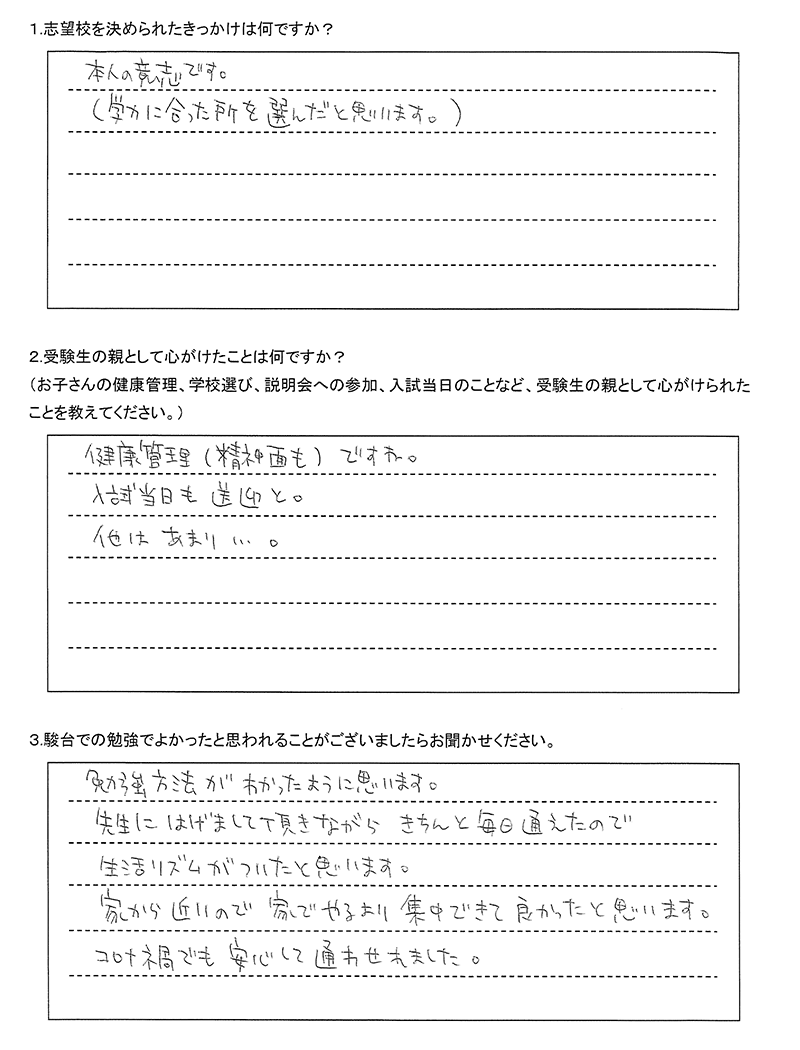 1.志望校を決められたきっかけは何ですか？
本人の意志です。
（学力に合った所を選んだと思います。）
2.受験生の親として心がけたことは何ですか？
（お子さんの健康管理、学校選び、説明会への参加、入試当日のことなど、受験生の親として心がけられた
ことを教えてください。）
健康管理（精神面も）ですかね。
入試当日も送迎と。
他はあまり…。
3.駿台での勉強でよかったと思われることがございましたらお聞かせください。
勉強方法がわかったように思います。
先生にはげまして頂きながらきちんと毎日通えたので
生活リズムがついたと思います。
家から近いので家でやるより集中できて良かったと思います。
コロナ禍でも安心して通わせれました。